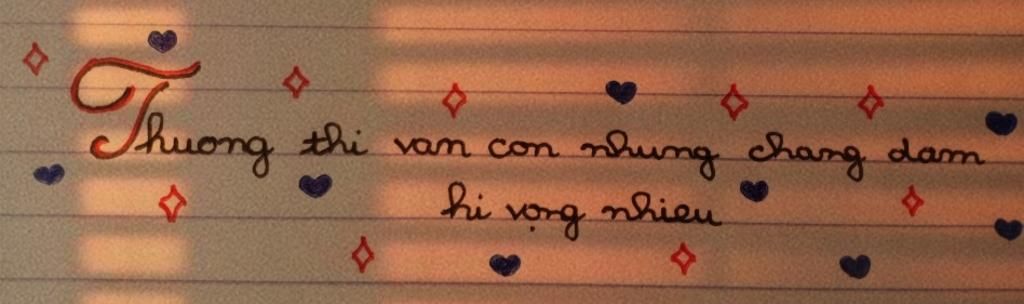 Thuong thi van con nhung chang dam
hi vọng nhieu